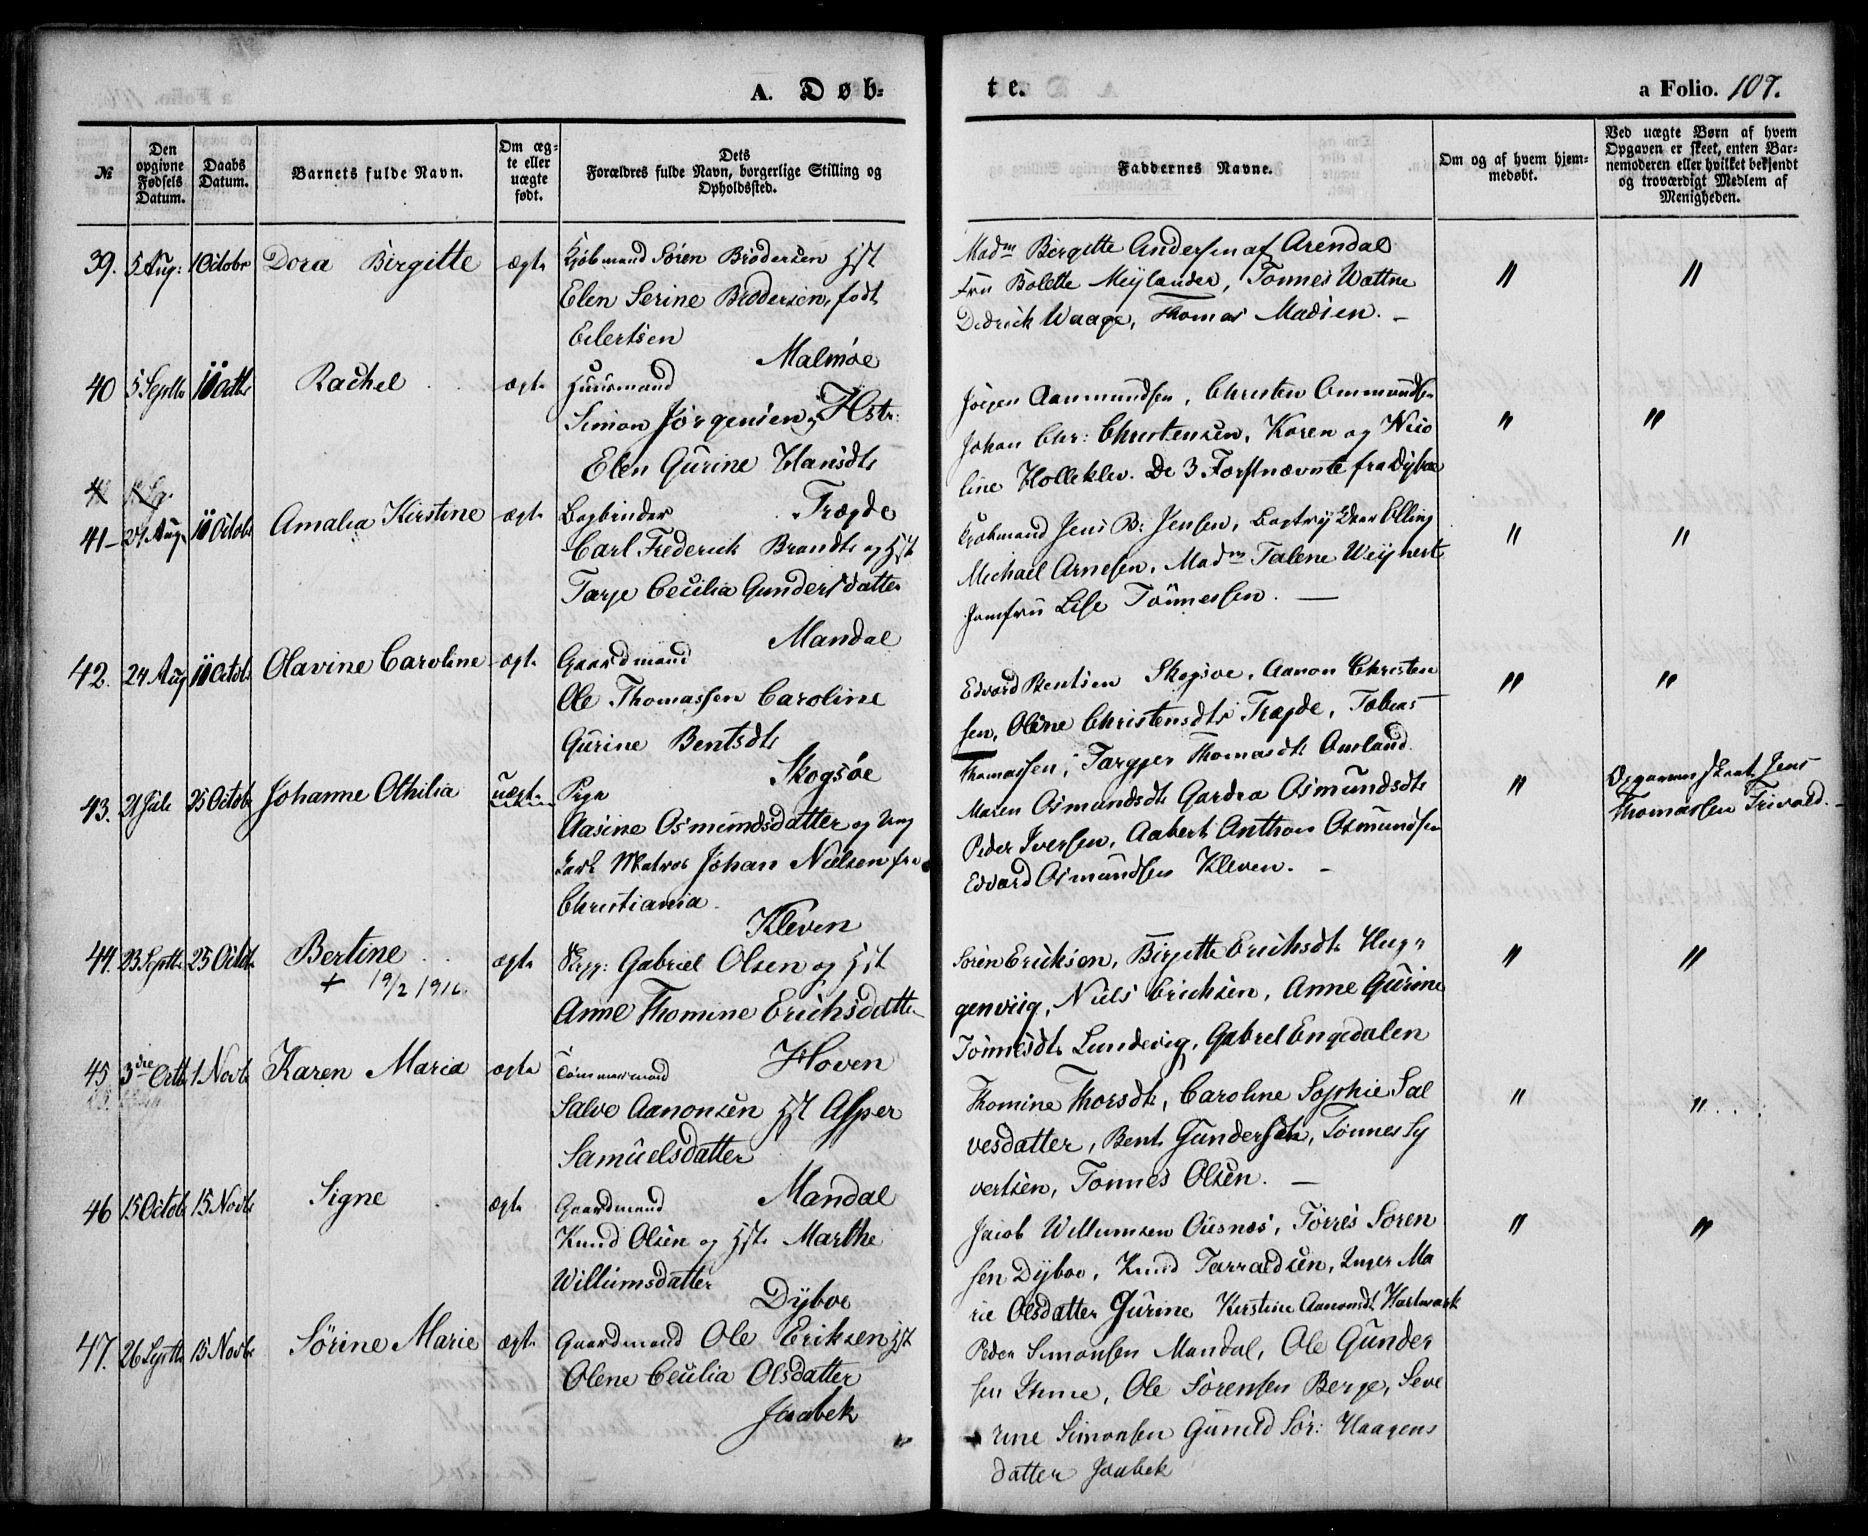 A. Døb-
te.
a Folio. 107.
№
Den opgivne Fødsels Datum.
Daabs Datum.
Barnets fulde Navn.
Om ægte eller uægte født.
Dets Forældres fulde Navn, borgerlige Stilling og Opholdssted.
Faddernes Navne.
Om og af hvem hjemmedøbt.
Ved uægte Børn af hvem Opgaven er skeet, enten Barnemoderen eller hvilket bekjendt og troværdigt Medlem af Menigheden.
39. 5 Aug: 1 Octobr Dora Birgitte ægte Kjøbmand Sören Brödersen Hst
Elen Serine Brodersen, födt
Eilertsen
Malmøe
Madm Birgitte Andersen af Arendal
Fru Bolette Meylander, Tonnes Wattne
Dedrick Waage, Thomas Madsen. —
" "
40 5 Septb Rachel ægte Huusmand
Simon Jörgensen og Hstr:
Elen Gurine Hansdt
Trægde
Jörgen Aanmundsen, Christen Ommundsen
Johan Chr: Christensen, Karen og Nico
line Holleklev. De 3 Førstnævnte fra Dyboe
" "
41
41 – 27 Aug Octob Amalia Kirstine ægte Bogbinder
Carl Frederick Brandt og Hst
Tarje Cecilia Gundersdatter
Mandal
Kjøbmand Jens B: Jensen, Bogtrykker Elling
Michael Arnesen, Madm Talene Weyhert
Jomfru Lise Tönnessen. —
" "
42. 24 Aug Octob Olavine Caroline ægte Gaardmand
Ole Thomassen Caroline
Gurine Bentsdt
Skogsøe
Edvard Bentsen Skogsøe, Aanon Christen
sen, Oline Christensdt Trægde, Tobias
Thomassen, Targjer Thomasdt
" "
43. 21 Jule 25 Octob Johanne Othilia uægte Pige
Aasine Osmundsdatter og Ung
karl Matros Johan Nielsen fra
Christiania.
Kleven
Maren Osmundsdt Gardea Osmundsdt
Peder Iversen, Aabert Anthon Osmundsen
Edvard Osmundsen Kleven. –
"
Opgaven skeet Jens
Thomassen Frivold. –
44. 23 Septb 25 Octob Bertine ægte Skpp: Gabriel Olsen og Hst
+ 19/2 1916.
Anne Thomine Erichsdatter
Hoven
Sören Ericksen, Birgitte Erichsdt Hug
genviig, Niels Ericksen, Anne Gurine
Tönnesdt Lundevig, Gabrel Engedalen
" "
45 3die Octb 1 Novb Karen Maria ægte Tömmermand
Salve Aanonsen Hst Asper
Samuelsdatter
Mandal
Thomine Thorsdt, Caroline Sophie Sal
vesdatter, Bent Gundersen, Tönnes Sy
vertsen, Tonnes Olsen. —
" "
46 15 Octob 15 Novb Signe ægte Gaardmand
Knud Olsen og Hst Marthe
Willumsdatter
Dyboe
Jacob Willumsen Ousnes, Törres Soren
sen Dyboe, Knud Tarraldsen, Inger Ma
rie Olsdatter Gurine Kirstine Aanonsdt Hartmark
" "
47. 26 Septb 15 Novb Sörine Marie ægte Gaardmand Ole Eriksen Hst
Olene Cecilia Olsdatter
Jaabek
Peder Simonsen Mandal, Ole Gunder
sen Ihme, Ole Sorensen Berge, Seve
rine Simonsen Gunild Sör: Haagens
datter Jaabek